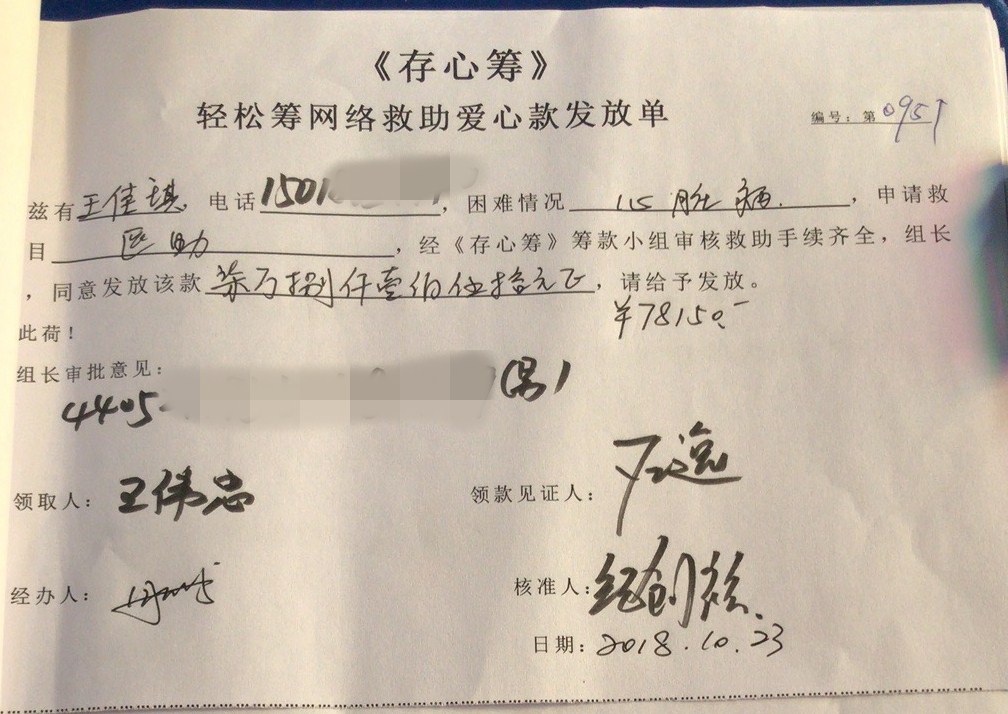 《存心筹》
轻松筹网络救助爱心款发放单
编号：第0951
兹有王佳琪，电话1501，困难情况心脏病，申请救
目医助，经《存心筹》筹款小组审核救助手续齐全，组长
，同意发放该款柒万捌仟壹佰伍拾元正，请给予发放。
¥78150.-
此荷！
组长审批意见：
4405 (男)
领取人：王伟忠
领款见证人：
经办人：
核准人：纪创
日期：2018.10.23